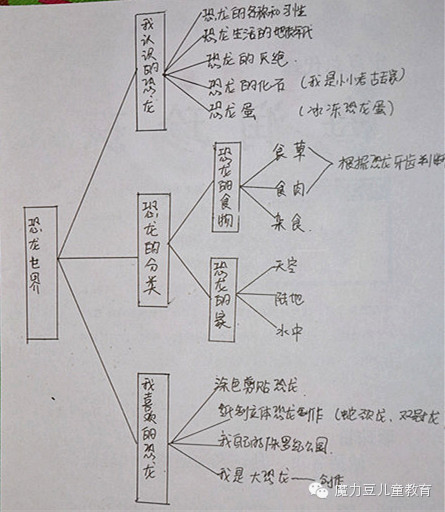 我认识的恐龙
恐龙的名称和习性
恐龙生活的地球年代
恐龙的灭绝
恐龙的化石 (我是小小考古专家)
恐龙蛋 (冰冻恐龙蛋)
恐龙世界
恐龙的分类
恐龙的食物
食草
食肉
杂食
根据恐龙牙齿判断
恐龙的家
天空
陆地
水中
我喜欢的恐龙
涂色剪贴恐龙
纸制立体恐龙制作
我的侏罗纪公园
我是大恐龙——创作
魔力豆儿童教育